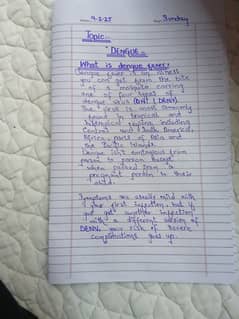 9-2-25 Sunday
Topic:-
"DENGUE"
What is dengue fever?
Dengue fever is an illness
you can get from the bite
of a mosquito carrying
one of four types of
dengue virus (DENV).
The virus is most commonly
found in tropical and
subtropical regions, including
Central and South America,
Africa, parts of Asia and
the Pacific Islands.
Dengue isn't contagious from
person to person except
when passed from a
pregnant person to their
child.
Symptoms are usually mild with
your first infection, but if
you get another infection
with a different version of
DENV, your risk of severe
complications goes up.